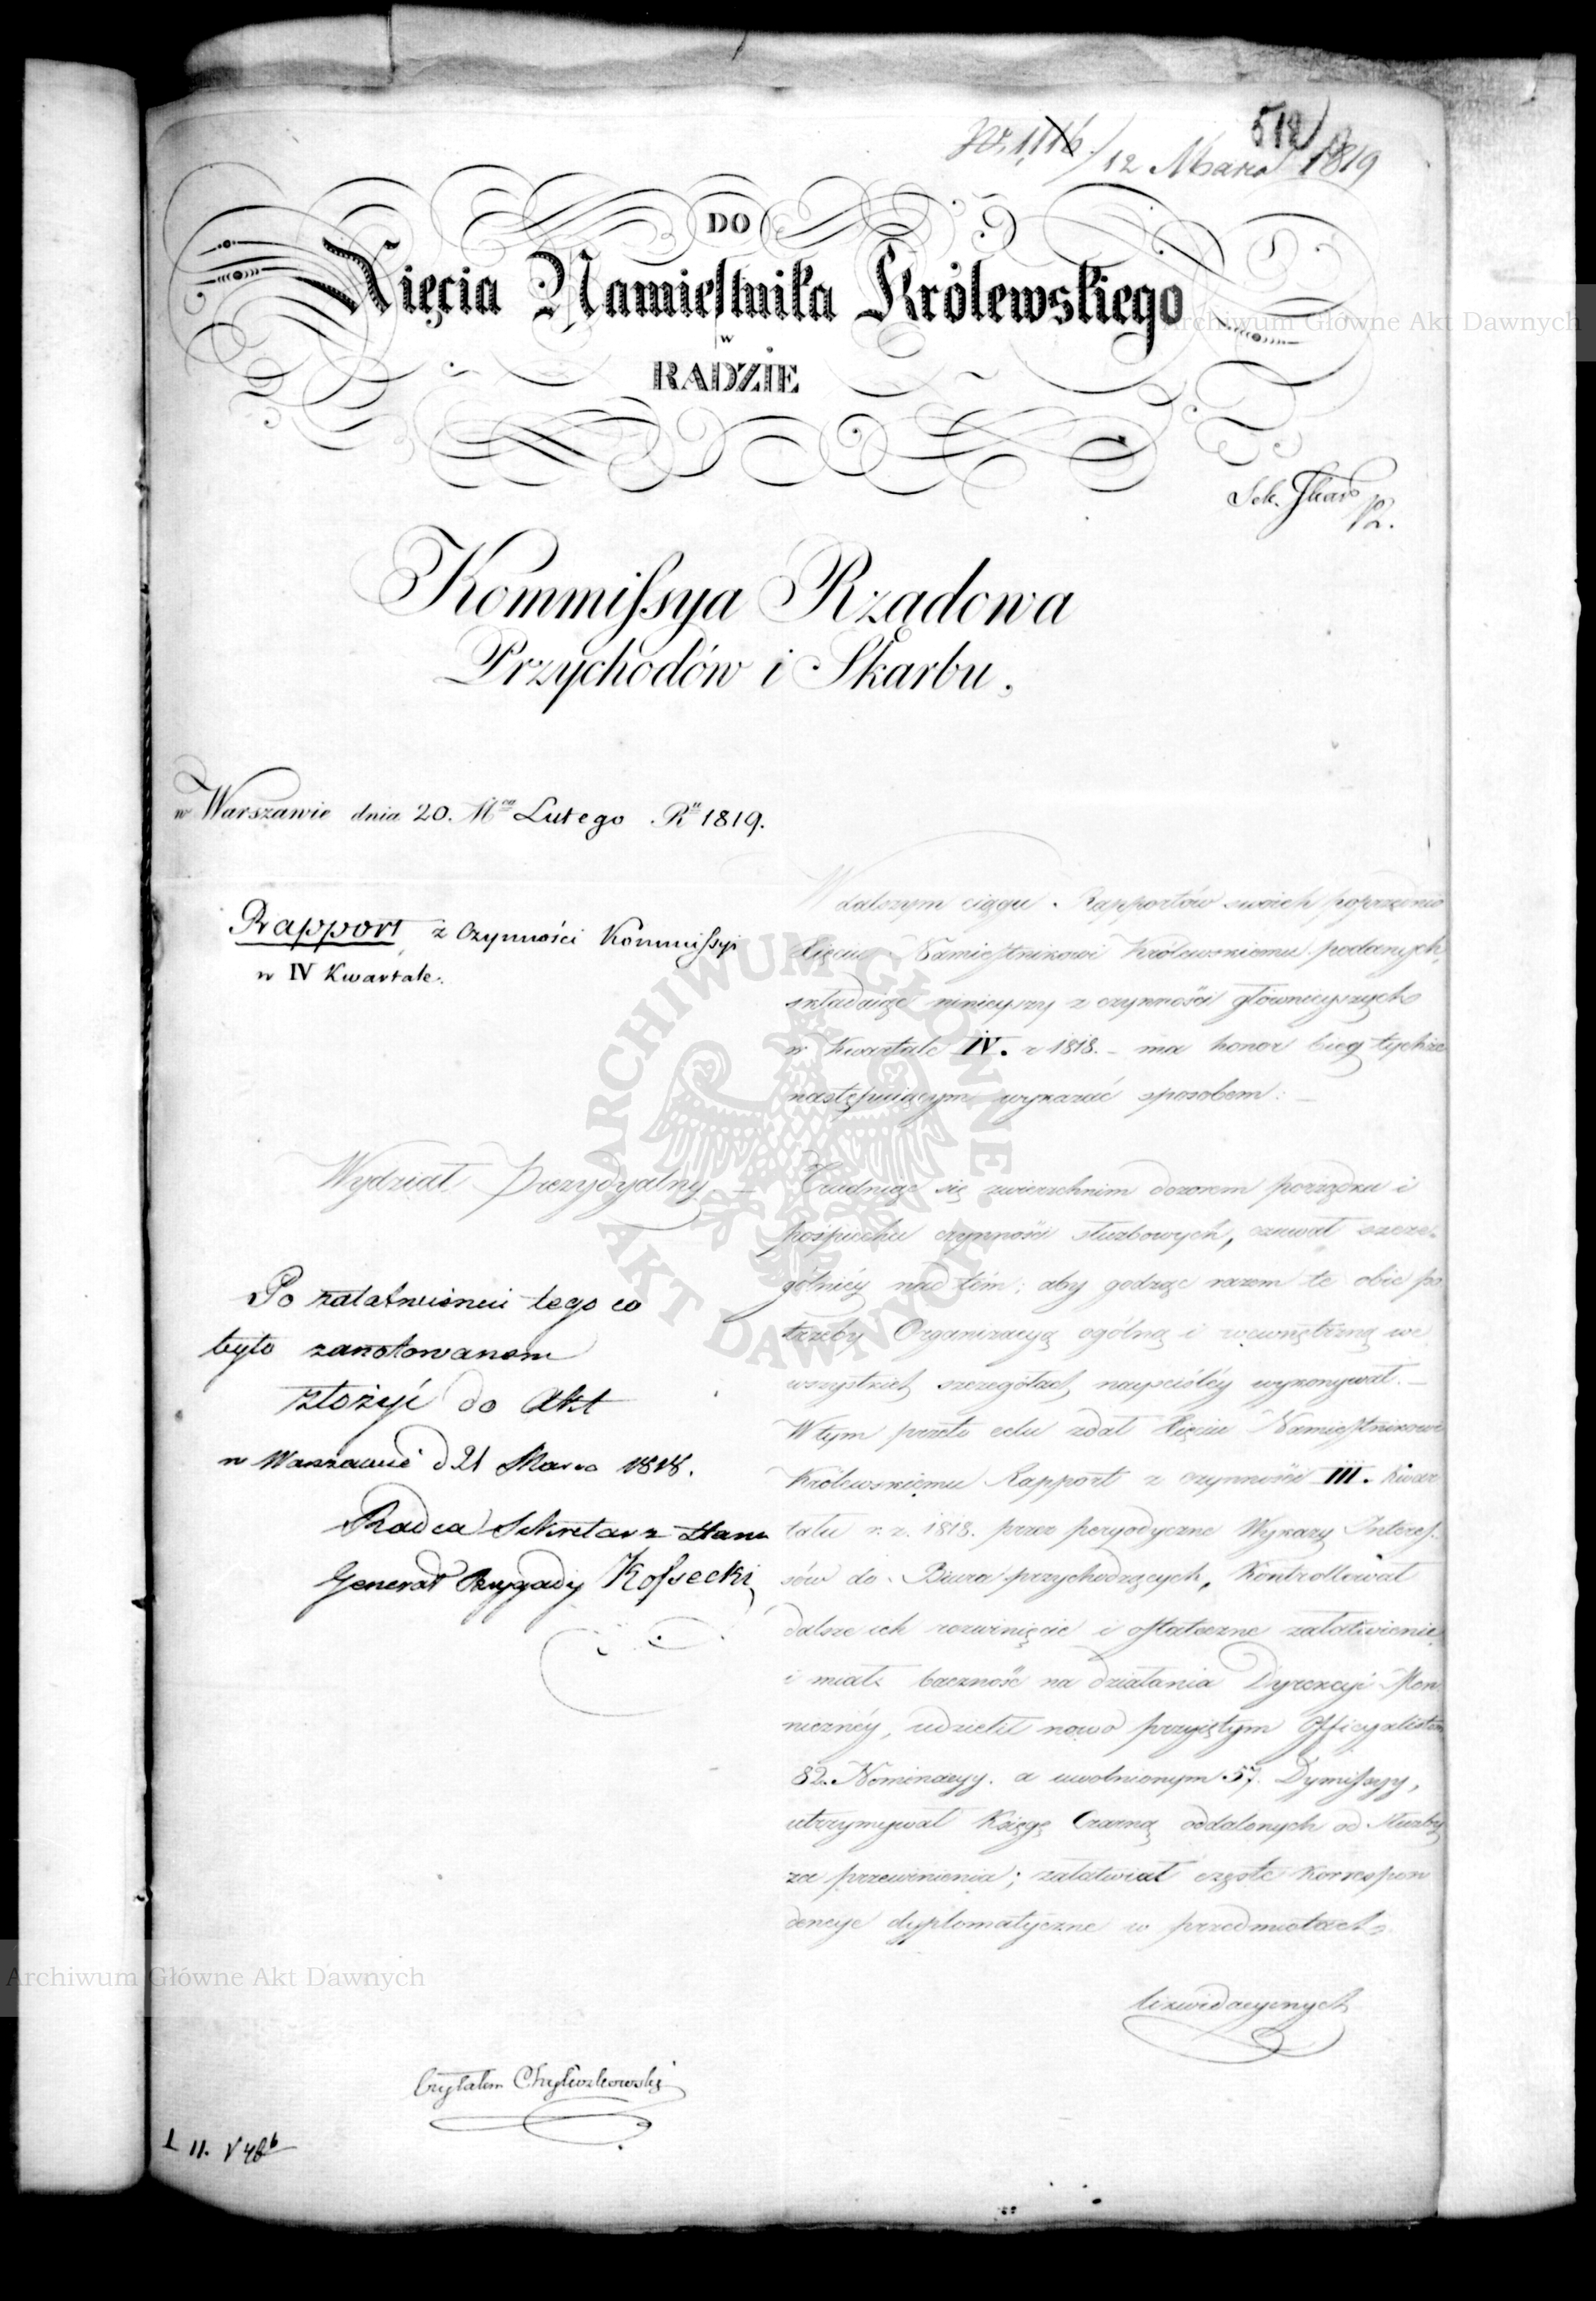 519
12 Marca 1819
DO
Xięcia Namiestnika Królewskiego
w
RADZIE
Archiwum Główne Akt Dawnych
Kommissya Rządowa
Przychodów i Skarbu.
w Warszawie dnia 20. Mca Lutego Ru 1819.
Rapport z Czynności Kommissyi
w IV Kwartale.
W dalszym ciągu Rapportów swoich poprzednio
Xięciu Namiestnikowi Królewskiemu podanych,
składaiąc ninieyszy z czynności główneyszych
w Kwartale IV. r 1818. – ma honor bieg tychże
następuiącym wykazać sposobem: –
Wydział Prezydyalny –
Trudniąc się zwierzchnim dozorem porządku i
pośpiechu czynności służbowych, czuwał szcze-
gólniéy nad tém; aby godząc razem te obie po
trzeby Organizacyą ogólną i wewnętrzną we
wszystkich szczegółach nayściśléy wykonywał. –
W tym przeto celu zdał Xięciu Namiestnikowi
Królewskiemu Rapport z czynności III. Kwar
tału r. z. 1818. przez peryodyczne Wykazy Interes-
sów do Biura przychodzących, Kontrollował
dalsze ich rozwinięcie i ostateczne załatwienie
i miał baczność na działania Dyrekcyi Men
niczéy, udzielił nowo przyiętym Officyalistom
82. Nominacyy. a uwolnionym 57. Dymissyy,
utrzymywał Księgę Czarną oddalonych od służby
za przewinienia; załatwiał częste Korrespon
dencye dyplomatyczne w przedmiotach
likwidacyynych
Po załatwieniu tego co
było zanotowanem
złożyć do Akt
w Warszawie d 21 Marca 1818.
Radca Sekretarz Stanu
Generał Brygady Kossecki
Czytałem
Archiwum Główne Akt Dawnych